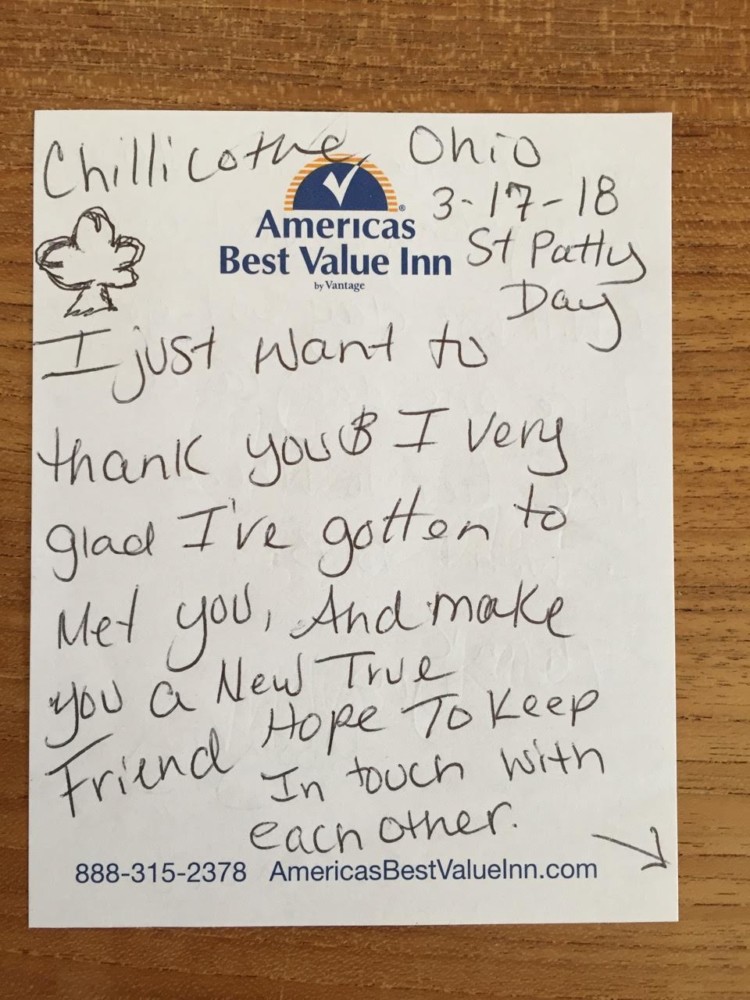 Chillicothe, Ohio
3-17-18
Americas
Best Value Inn
by Vantage
St Patty
Day
I just want to
thank you & I very
glad I've gotten to
Met you, And make
you a New True
Friend Hope To Keep
In touch with
each other.
888-315-2378 AmericasBestValueInn.com